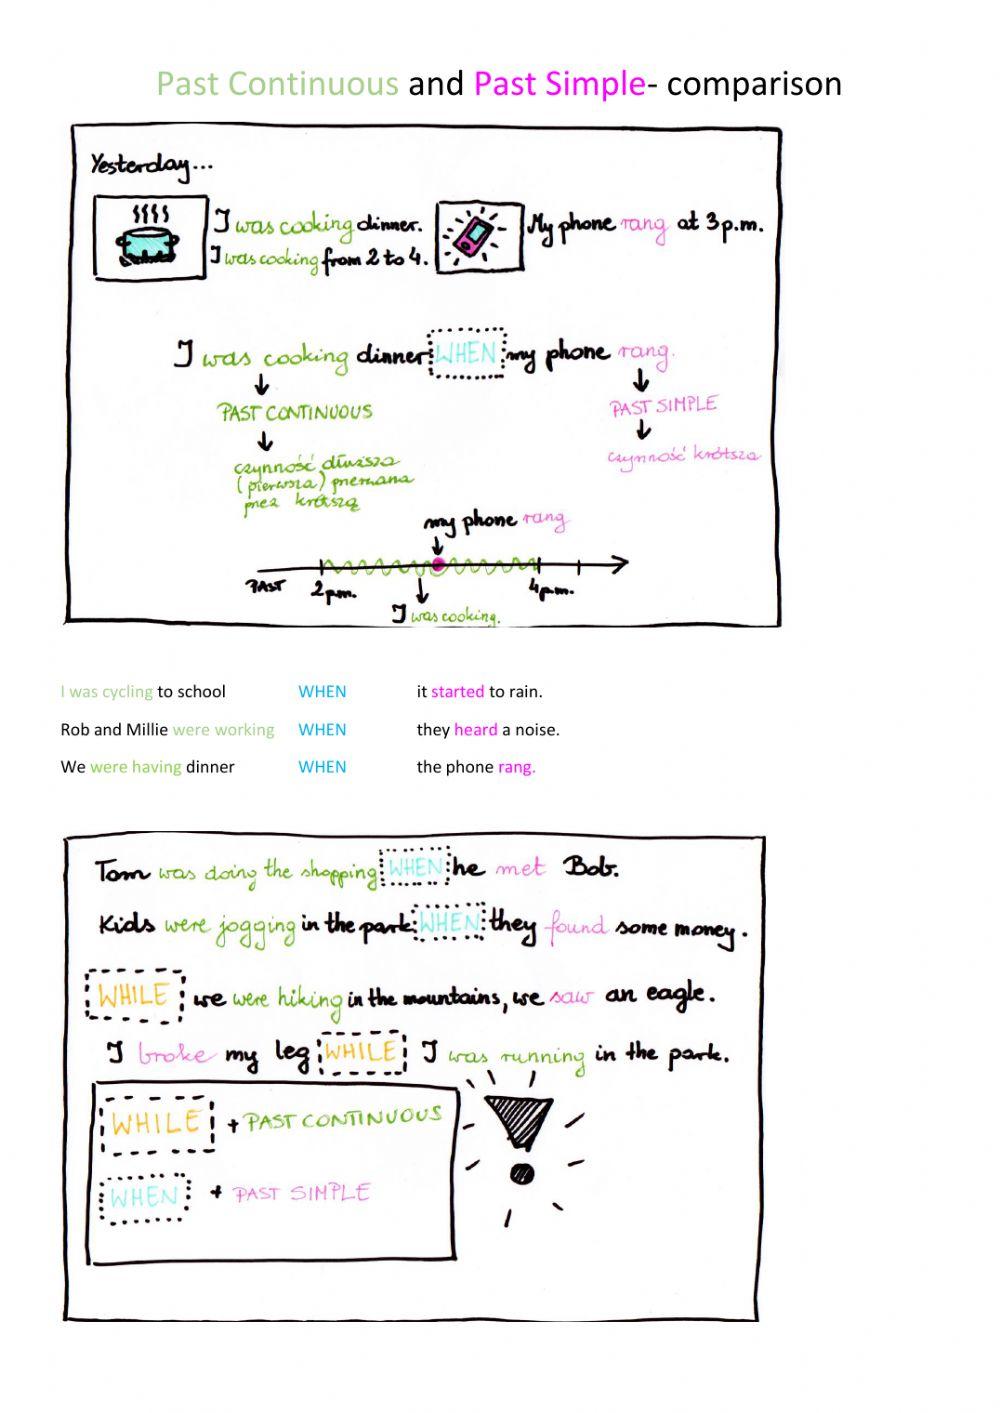 Past Continuous and Past Simple- comparison
Yesterday...
I was cooking dinner.
I was cooking from 2 to 4.
My phone rang at 3 p.m.
I was cooking dinner WHEN my phone rang.
PAST CONTINUOUS
PAST SIMPLE
czynność dłuższa
(pierwsza) przerwana
przez krótszą
czynność krótsza
my phone rang
PAST 2 p.m. 4 p.m.
I was cooking.
I was cycling to school WHEN it started to rain.
Rob and Millie were working WHEN they heard a noise.
We were having dinner WHEN the phone rang.
Tom was doing the shopping WHEN he met Bob.
Kids were jogging in the park WHEN they found some money.
WHILE we were hiking in the mountains, we saw an eagle.
I broke my leg WHILE I was running in the park.
WHILE + PAST CONTINUOUS
WHEN + PAST SIMPLE